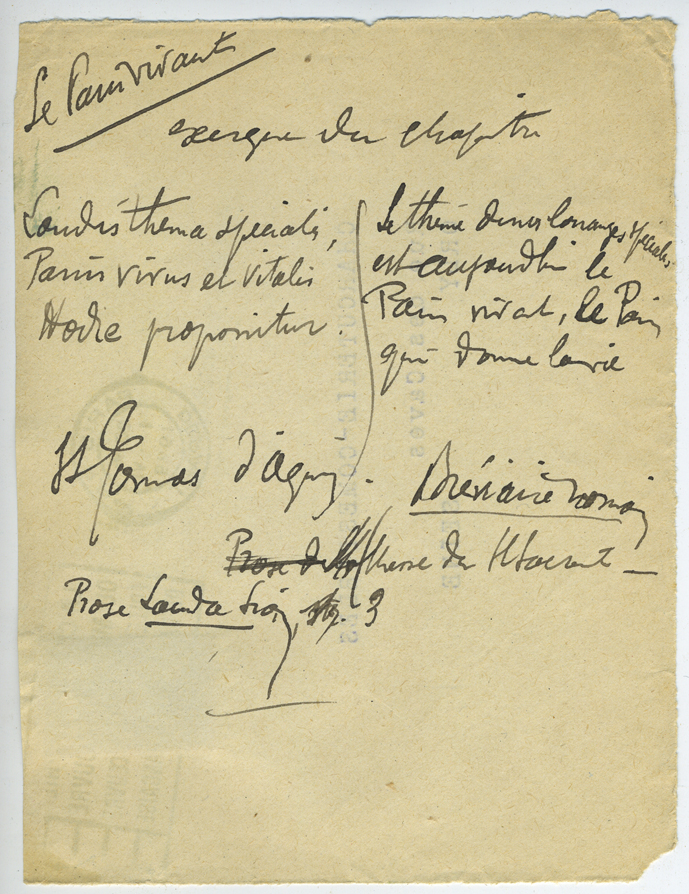 Le Pain vivant
exergue du chapitre
Laudis thema specialis,
Panis vivus et vitalis
Hodie proponitur.
Le thème de nos louanges spéciales
est aujourdhui le
Pain vivant, le Pain
qui donne la vie
St Tomas d'Aquin.
Bréviaire romain
Prose d
Messe du St Sacrent
Prose Lauda Sion, str. 3